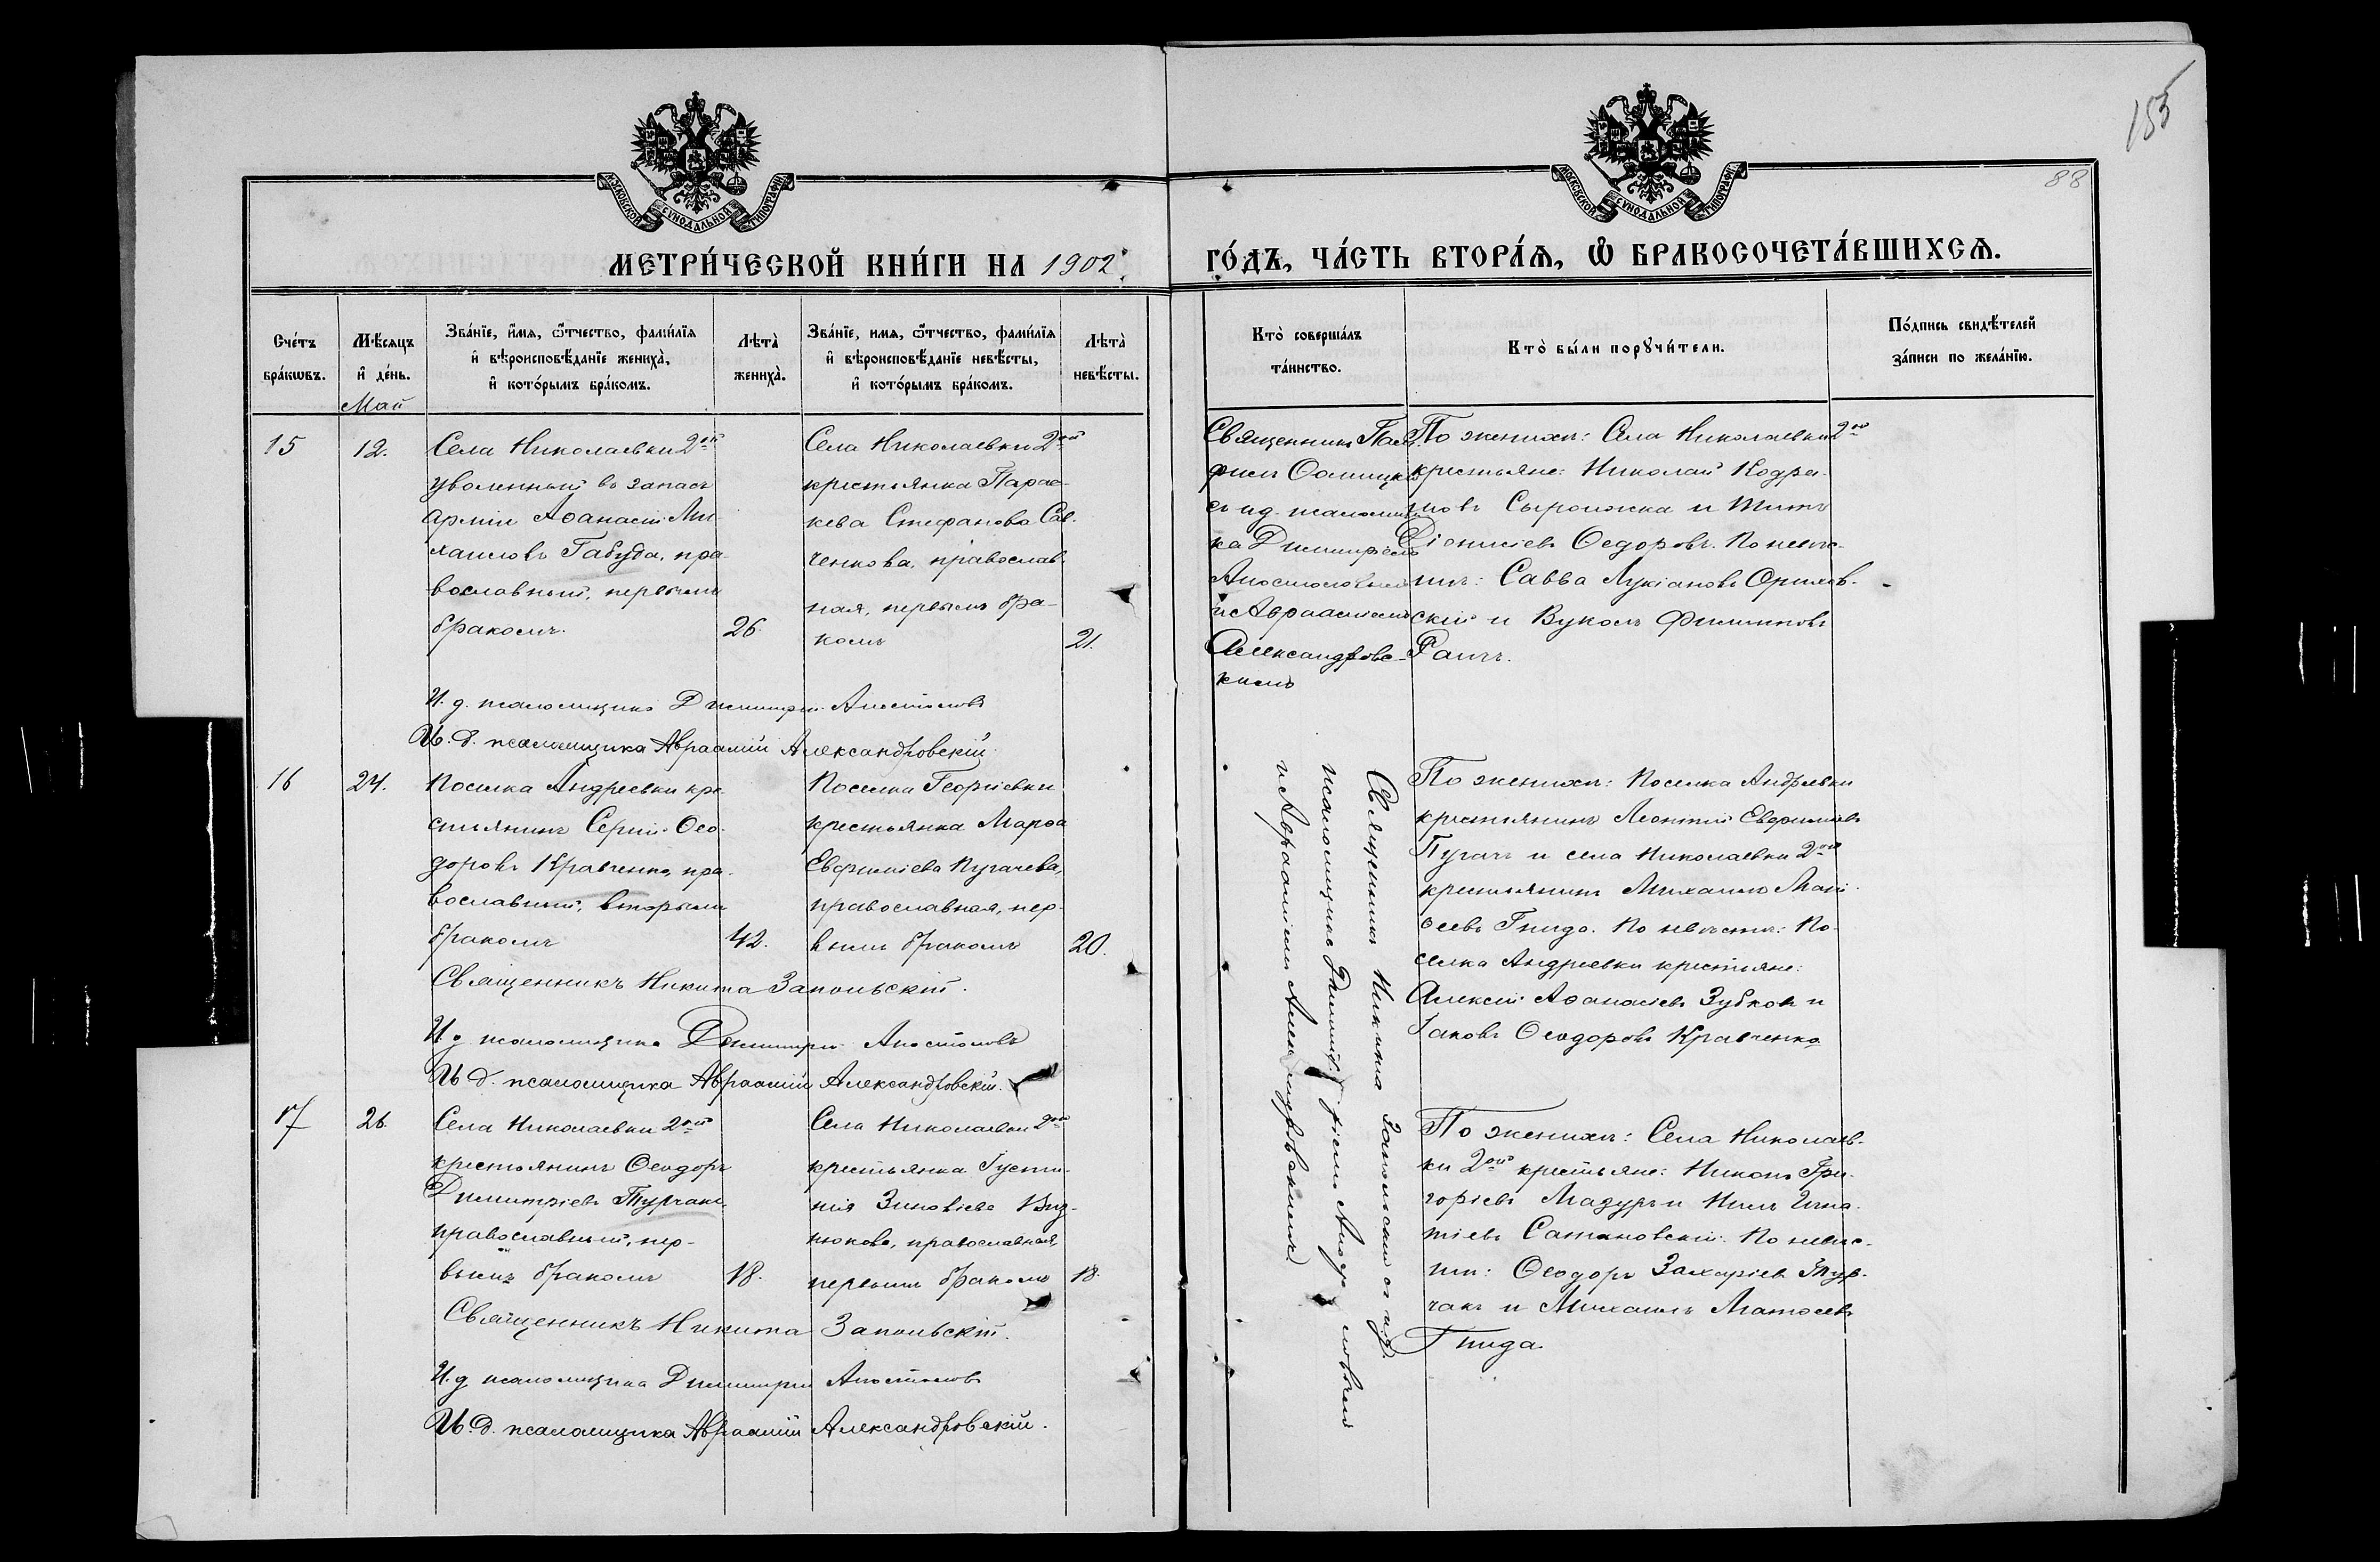 155
88
МОСКОВСКОЙ СУНОДАЛЬНОЙ ТИПОГРАФIИ
МОСКОВСКОЙ СУНОДАЛЬНОЙ ТИПОГРАФIИ
МЕТРИ́ЧЕСКОЙ КНИ́ГИ НА 1902
ГО́ДЪ, ЧА́СТЬ ВТОРА́Ѧ, Ѡ҆ БРАКОСОЧЕТА́ВШИХСѦ.
Сче́тъ
бра́кѡвъ.
Мѣ́сяцъ
и҆ де́нь.
Май
Зва́нїе, и҆́мя, ѻ҆́тчество, фами́лїя
и҆ вѣроисповѣ́данїе жениха̀,
и҆ кото́рымъ бра́комъ.
Лѣта̀
жениха̀.
Зва́нїе, имя, ѻ҆́тчество, фами́лїя
и҆ вѣроисповѣ́данїе невѣ́сты,
и҆ кото́рымъ бра́комъ.
Лѣта̀
невѣ́сты.
Кто̀ соверша́лъ
та́инство.
Кто̀ бы́ли порꙋчи́тели.
По́дпись свидѣ́телей
за́писи по жела́нїю.
15
12.
Села Николаевки 2ой
уволенный въ запасъ
армiи Аѳанасiй Ми-
хаиловъ Габуда, пра-
вославный, первымъ
бракомъ.
26.
Села Николаевки 2ой
крестьянка Парас-
кева Стефанова Сав-
ченкова, православ-
ная, первымъ бра-
комъ
21.
Священникъ Пам-
филъ
съ и.д. псаломщи-
ка Димитрiемъ
Апостоловымъ
и Авраамiемъ
Александровс-
кимъ
По женихѣ: Села Николаевки 2ой
крестьяне: Николай Кодра-
товъ Сыроижка и Титъ
Дiонисiевъ Ѳедоровъ. По невѣс-
тѣ: Савва Лукiановъ
скiй и Вуколъ Филиповъ
И. д. псаломщика Димитрiй Апостоловъ
И. д. псаломщика Авраамiй Александровскiй.
16
24.
Поселка Андреевки кре-
стьянинъ Сергiй Ѳео-
доровъ Кравченко, пра-
вославный, вторымъ
бракомъ
42.
Поселка Георгiевки
крестьянка Марѳа
Евфимiева Пугачева,
православная, пер-
вымъ бракомъ
20.
Священникъ Никита Запольскiй съ и.д.
псаломщика Димитрiемъ Апостоловымъ
и Авраамiемъ Александровскимъ
По женихѣ: Поселка Андреевки
крестьянинъ Леонтiй Евфимiевъ
Пугачъ и села Николаевки 2ой
крестьянинъ Михаилъ Мат-
ѳеевъ Гнида. По невѣстѣ: По-
селка Андреевки крестьяне:
Алексiй Аѳанасiевъ Зубковъ и
Iаковъ Ѳеодоровъ Кравченко
Священникъ Никита Запольскiй.
И. д. псаломщика Димитрiй Апостоловъ
И. д. псаломщика Авраамiй Александровскiй.
17
26.
Села Николаевки 2ой
крестьянинъ Ѳеодоръ
Димитрiевъ Турчакъ,
православный, пер-
вымъ бракомъ
18.
Села Николаевки 2ой
крестьянка Iусти-
нiя Зиновiева
нюкова, православная,
первымъ бракомъ
18.
По женихѣ: Села Николаев-
ки 2ой крестьяне: Никонъ Гри-
горiевъ Мазуръ и Нилъ Игна-
тiевъ Сатановскiй. По невѣс-
тѣ: Ѳеодоръ Захарiевъ Тур-
чакъ и Михаилъ Матѳеевъ
Гнида.
Священникъ Никита Запольскiй.
И. д. псаломщика Димитрiй Апостоловъ
И. д. псаломщика Авраамiй Александровскiй.